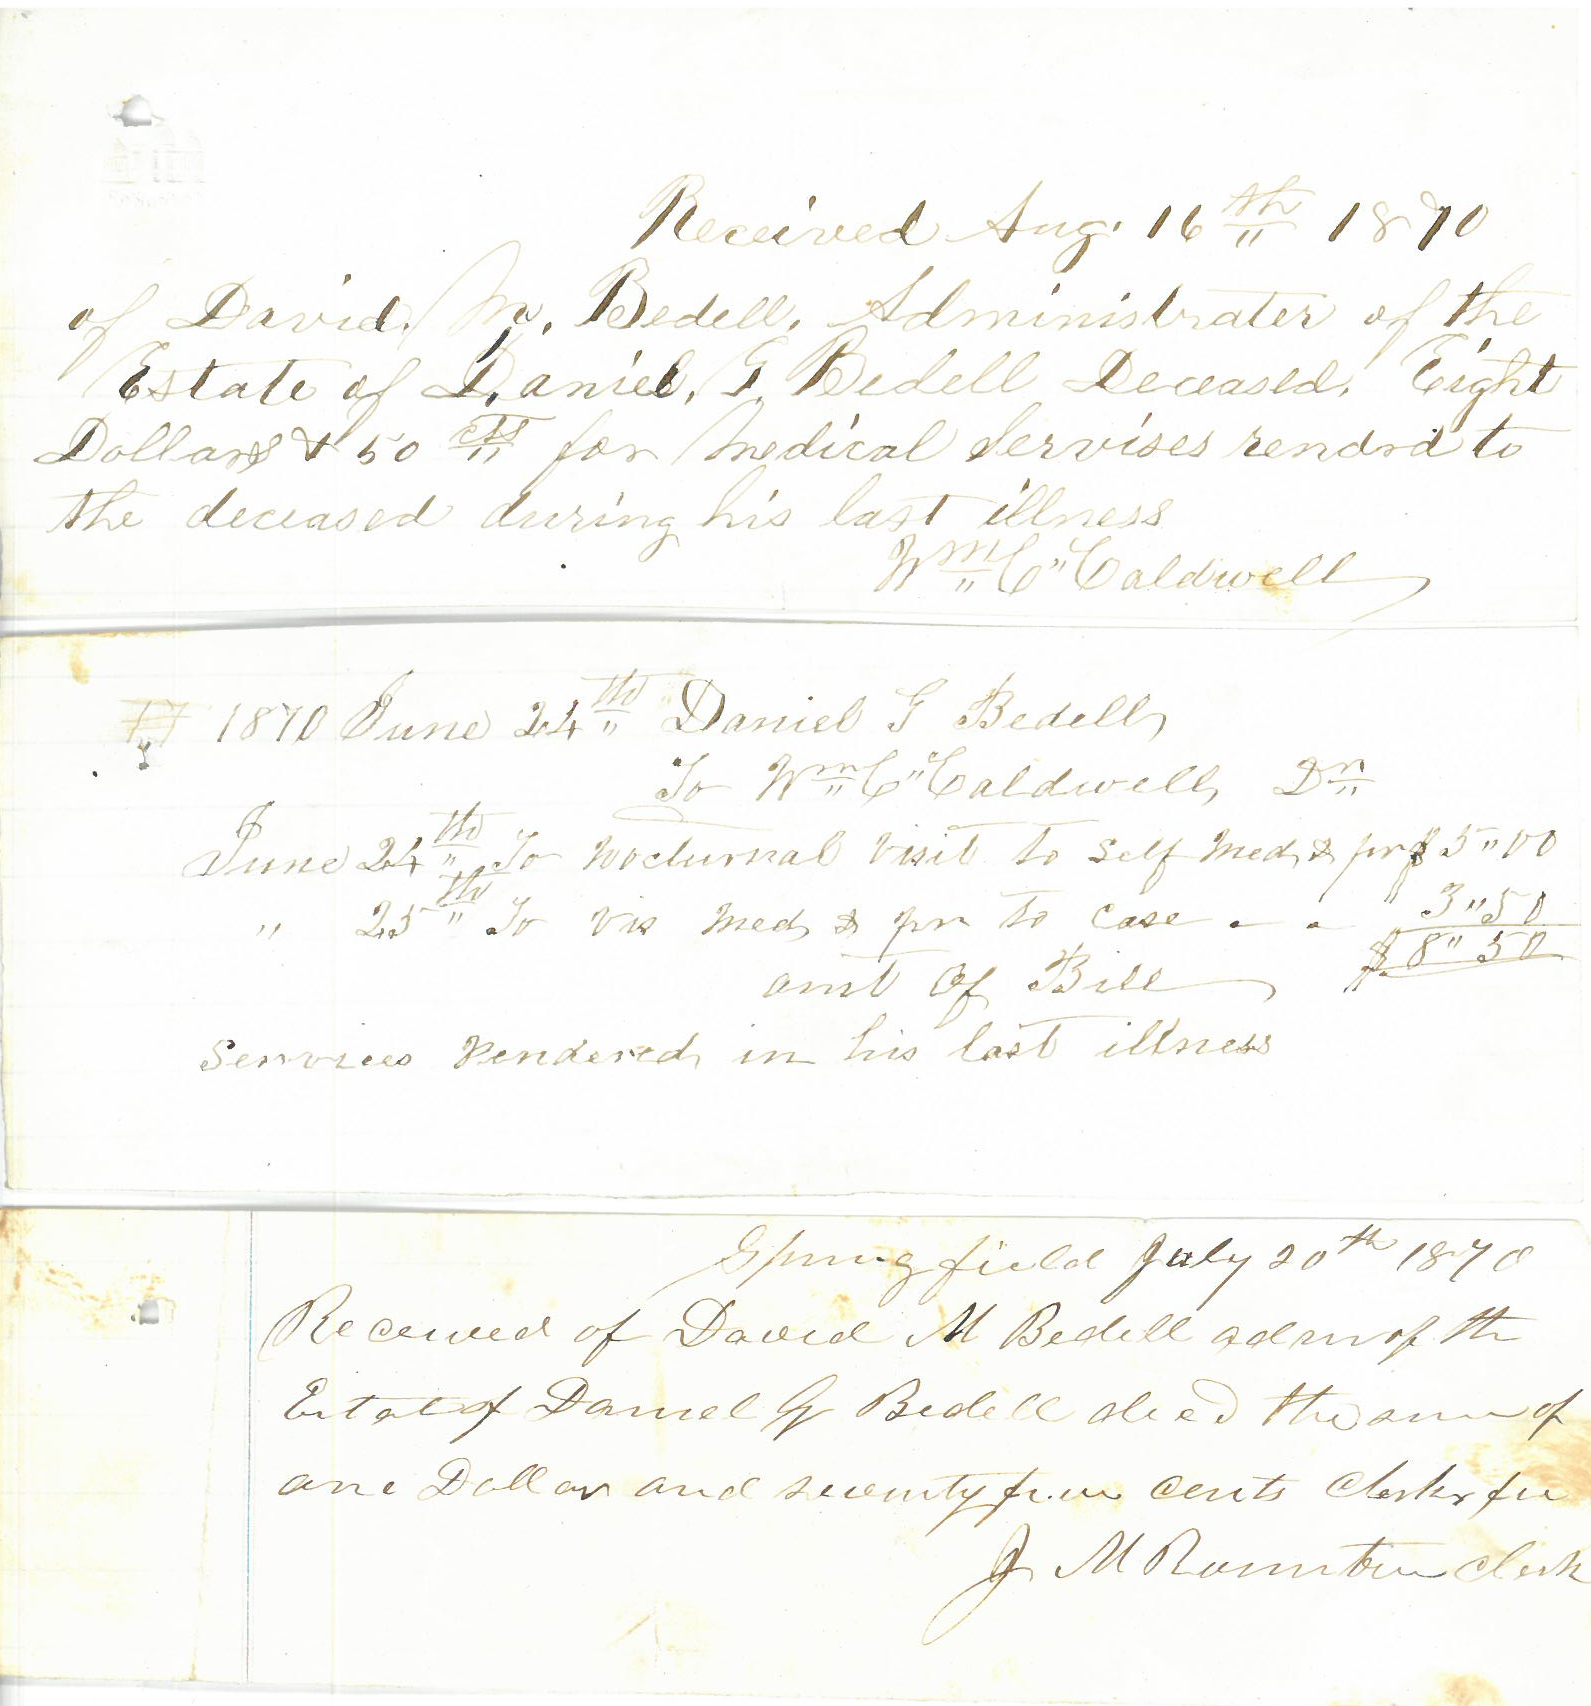 Received Aug. 16th 1870
of David. M. Bedell. Administrater of the
Estate of Daniel. G. Bedell Deceased. Eight
Dollars & 50 cts for Medical Servises rendrd to
the deceased during his last illness
Wm C" Caldwell
1870 June 24th Daniel G Bedell,
To Wm C" Caldwell, Dr
June 24th To Nocturnal Visit to Self Med, & pr $5"00
" 25th To Vis Med, & pr to Case - - " 3"50
$8"50
amt Of Bill
Services Rendered, in his last illness
Springfield July 20th 1870
Received of David M Bedell adm of th
Estate of Daniel G Bedell dced the sum of
one Dollar and seventy five cents clerks fee
J M clerk